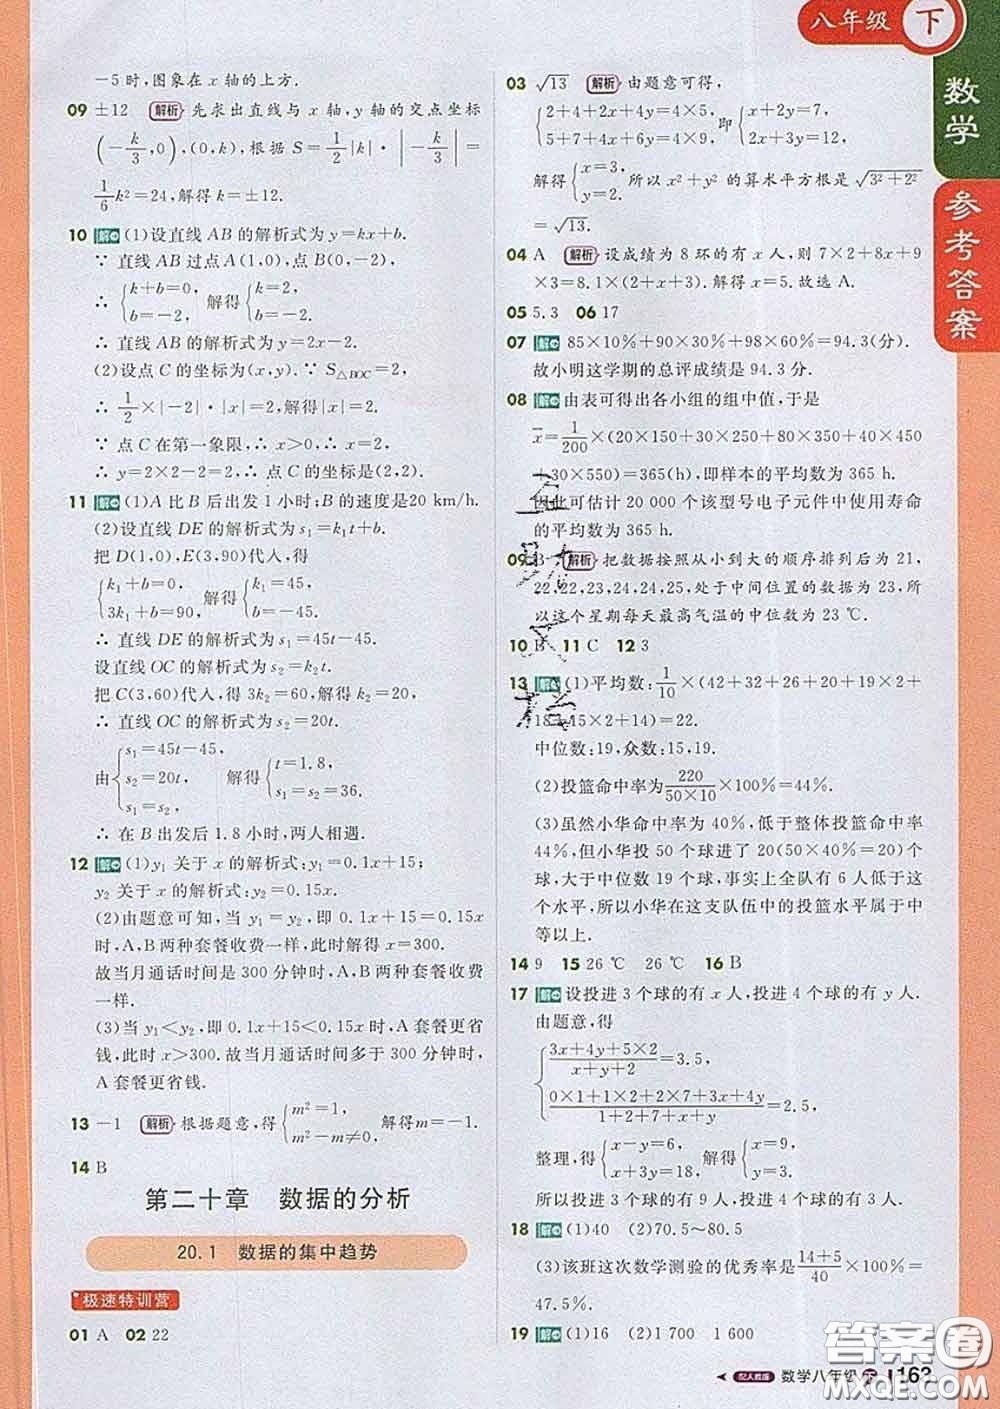 八年级 下
数学
参考答案
-5时,图象在 x 轴的上方.
09 ±12 解析 先求出直线与 x 轴,y 轴的交点坐标
(-k/3,0),(0,k),根据 S=1/2|k|·|-k/3|=
1/6k²=24,解得 k=±12.
10 解 (1)设直线 AB 的解析式为 y=kx+b.
∵ 直线 AB 过点 A(1,0),点 B(0,-2),
∴ {k+b=0, b=-2, 解得 {k=2, b=-2.
∴ 直线 AB 的解析式为 y=2x-2.
(2)设点 C 的坐标为(x,y). ∵ S△BOC=2,
∴ 1/2×|-2|·|x|=2,解得|x|=2.
∵ 点 C 在第一象限,∴ x>0,∴ x=2.
∴ y=2×2-2=2,∴ 点 C 的坐标是(2,2).
11 解 (1)A 比 B 后出发 1 小时;B 的速度是20 km/h.
(2)设直线 DE 的解析式为 s₁=k₁t+b.
把 D(1,0),E(3,90)代人,得
{k₁+b=0, 3k₁+b=90, 解得 {k₁=45, b=-45.
∴ 直线 DE 的解析式为 s₁=45t-45.
设直线 OC 的解析式为 s₂=k₂t.
把 C(3,60)代人,得 3k₂=60,解得 k₂=20,
∴ 直线 OC 的解析式为 s₂=20t.
由 {s₁=45t-45, s₂=20t, s₁=s₂ 解得 {t=1.8, s₁=s₂=36.
∴ 在 B 出发后 1.8 小时,两人相遇.
12 解 (1)y₁ 关于 x 的解析式:y₁=0.1x+15;
y₂ 关于 x 的解析式:y₂=0.15x.
(2)由题意可知,当 y₁=y₂,即 0.1x+15=0.15x
时,A,B 两种套餐收费一样,此时解得 x=300.
故当月通话时间是 300 分钟时,A,B 两种套餐收费
一样.
(3)当 y₁<y₂,即 0.1x+15<0.15x 时,A 套餐更省
钱,此时 x>300.故当月通话时间多于 300 分钟时,
A 套餐更省钱.
13 -1 解析 根据题意,得 {m²=1, m²-m≠0, 解得m=-1.
14 B
第二十章 数据的分析
20.1 数据的集中趋势
极速特训营
01 A 02 22
03 √13 解析 由题意可得,
{2+4+2x+4y=4×5, 5+7+4x+6y=4×7, 即 {x+2y=7, 2x+3y=8,
解得 {x=3, y=2. 所以 x²+y² 的算术平方根是 √(3²+2²)
=√13.
04 A 解析 设成绩为 8 环的有 x 人,则 7×2+8x+9
×3=8.1×(2+x+3).解得 x=5.故选 A.
05 5.3 06 17
07 解 85×10%+90×30%+98×60%=94.3(分).
故小明这学期的总评成绩是 94.3 分.
08 解 由表可得出各小组的组中值,于是
x̄=1/200×(20×150+30×250+80×350+40×450
+30×550)=365(h),即样本的平均数为 365 h.
因此可估计 20 000 个该型号电子元件中使用寿命
的平均数为 365 h.
09 B 解析 把数据按照从小到大的顺序排列后为 21,
22,22,23,24,24,25,处于中间位置的数据为 23,所
以这个星期每天最高气温的中位数为 23 ℃.
10 B 11 C 12 3
13 解 (1)平均数:1/10×(42+32+26+20+19×2+
18+15×2+14)=22.
中位数:19,众数:15,19.
(2)投篮命中率为 220/(50×10)×100%=44%.
(3)虽然小华命中率为 40%,低于整体投篮命中率
44%,但小华投 50 个球进了 20(50×40%=20)个
球,大于中位数 19 个球,事实上全队有 6 人低于这
个水平,所以小华在这支队伍中的投篮水平属于中
等以上.
14 9 15 26 ℃ 26 ℃ 16 B
17 解 设投进 3 个球的有 x 人,投进 4 个球的有 y 人.
由题意,得
{(3x+4y+5×2)/(x+y+2)=3.5, (0×1+1×2+2×7+3x+4y)/(1+2+7+x+y)=2.5,
整理,得 {x-y=6, x+3y=18, 解得 {x=9, y=3.
所以投进 3 个球的有 9 人,投进 4 个球的有 3 人.
18 解 (1)40 (2)70.5~80.5
(3)该班这次数学测验的优秀率是 (14+5)/40×100%=
47.5%.
19 解 (1)16 (2)1 700 1 600
配人教版 数学八年级 下 163
答案圈
MXQE.COM